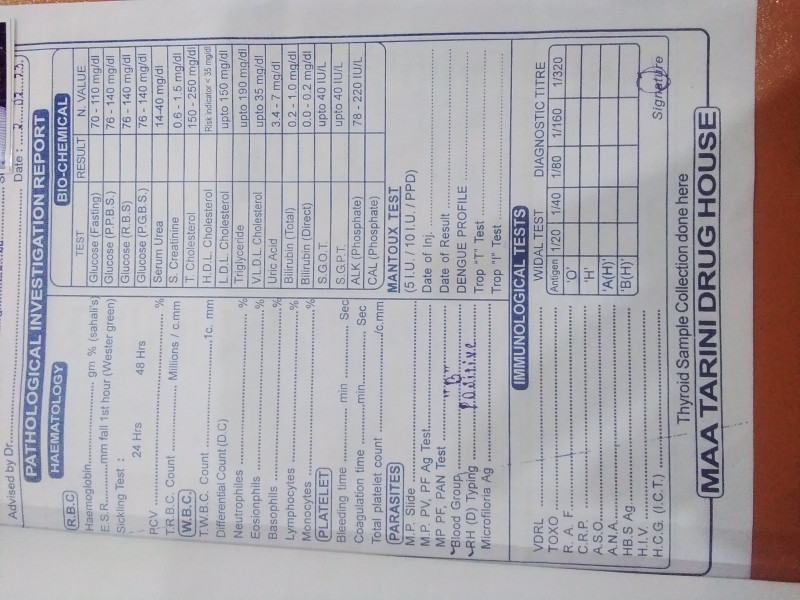 Advised by Dr.
Date : ....2....02...23.
PATHOLOGICAL INVESTIGATION REPORT
HAEMATOLOGY
R.B.C.
Haemoglobin.................. gm % (sahali's)
E.S.R........mm fall 1st hour (Wester green)
Sickling Test :
24 Hrs 48 Hrs
PCV ........................ %
T.R.B.C. Count ............ Millions / c.mm
W.B.C.
T.W.B.C. Count ................1c. mm
Differential Count (D.C)
Neutrophiles ........................ %
Eosionphils ........................ %
Basophils ........................ %
Lymphocytes ........................ %
Monocytes ........................ %
PLATELET
Bleeding time .......... min ....... Sec
Coagulation time .......min....... Sec
Total platelet count ............/c.mm
PARASITES
M.P. Slide ........................
M.P. PV, PF Ag Test........................
MP PF, PAN Test ........................
Blood Group ........ "B"
RH (D) Typing ........ positive
Microfiloria Ag ........................
BIO-CHEMICAL
TEST RESULT N. VALUE
Glucose (Fasting) 70 - 110 mg/dl
Glucose (P.P.B.S.) 76 - 140 mg/dl
Glucose (R.B.S) 76 - 140 mg/dl
Glucose (P.G.B.S.) 76 - 140 mg/dl
Serum Urea 14-40 mg/dl
S. Creatinine 0.6 - 1.5 mg/dl
T. Cholesterol 150 - 250 mg/dl
H.D.L. Cholesterol Risk indicator < 35 mg/dl
L.D.L. Cholesterol upto 150 mg/dl
Triglyceride upto 190 mg/dl
V.L.D.L. Cholesterol upto 35 mg/dl
Uric Acid 3.4 - 7 mg/dl
Bilirubin (Total) 0.2 - 1.0 mg/dl
Bilirubin (Direct) 0.0 - 0.2 mg/dl
S.G.O.T. upto 40 IU/L
S.G.P.T. upto 40 IU/L
ALK (Phosphate) 78 - 220 IU/L
CAL (Phosphate)
MANTOUX TEST
(5 I.U. / 10 I.U. / PPD)
Date of Inj. ........................
Date of Result ........................
DENGUE PROFILE ........................
Trop "T" Test ........................
Trop "I" Test ........................
IMMUNOLOGICAL TESTS
VDRL ........................
TOXO ........................
R. A. F. ........................
C.R.P. ........................
A.S.O. ........................
A.N.A. ........................
HB.S Ag ........................
H.I.V. ........................
H.C.G. (I.C.T.) ........................
WIDAL TEST DIAGNOSTIC TITRE
Antigen 1/20 1/40 1/80 1/160 1/320
'O'
'H'
'A(H)'
'B(H)'
Signature
Thyroid Sample Collection done here
MAA TARINI DRUG HOUSE